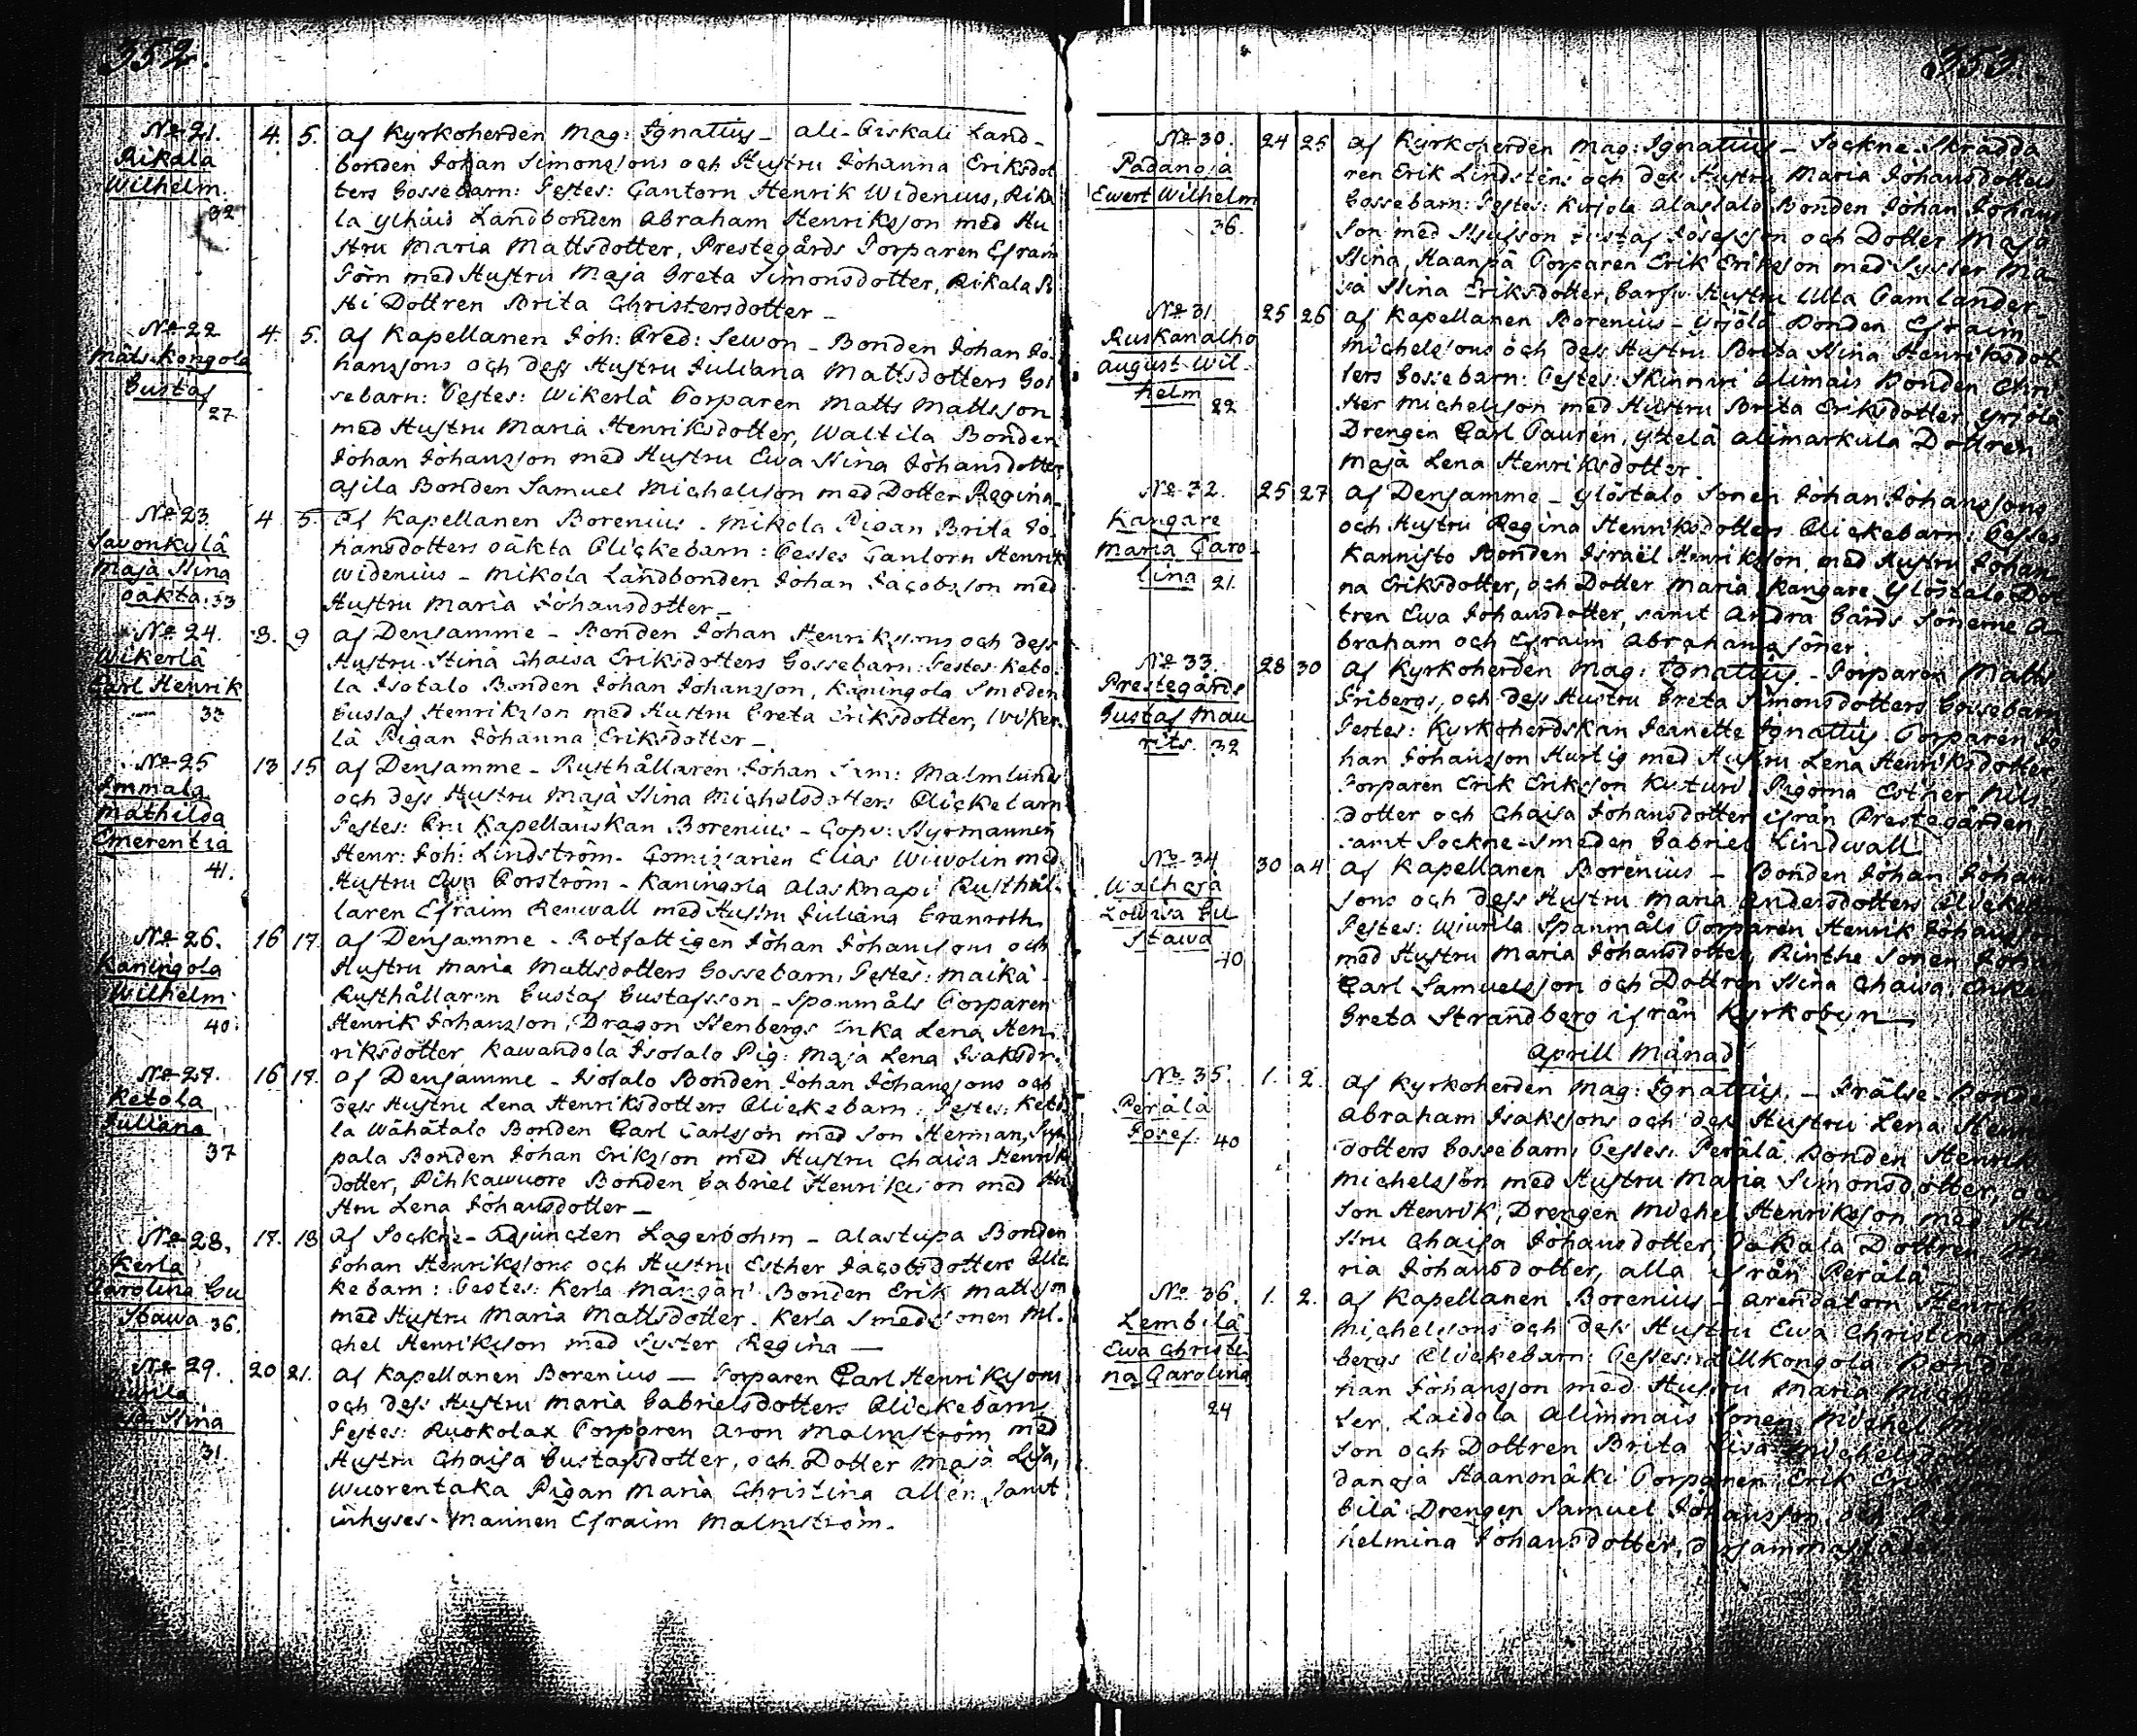 352.
No 21.
Rikala
Wilhelm.
32
4. 5.
af Kyrkoherden Mag: Ignatius - Ali- Land-
bonden Johan Simonssons och Hustru Johanna Eriksdot
ters Gossebarn: Testes: Cantorn Henrik Widenius, Rika
la Landbonden Abraham Henriksson med Hu
stru Maria Mattsdotter, Prestegårds Torparen Efraim
Törn med Hustru Maja Greta Simonsdotter, Rikala
Dottren Brita Christersdotter -
No 22
Mäls-Kongola
Gustaf
27
4. 5.
af Kapellanen Joh: Fred: Sewon - Bonden Johan Jo
hanssons och dess Hustru Juliana Mattsdotters Gos
sebarn: Testes: Wikerlä Torparen Matts Mattsson
med Hustru Maria Henriksdotter, Waltila Bonden
Johan Johansson med Hustru Ewa Stina Johansdotter,
Asila Bonden Samuel Michelsson med Dotter Regina -
No 23.
Savonkylä
Maja Stina
oäkta. 33
4 5.
af Kapellanen Borenius - Mikola Pigan Brita Jo
hansdotters oäkta Flickebarn: Testes Cantorn Henrik
Widenius - Mikola Landbonden Johan Jacobsson med
Hustru Maria Johansdotter -
No 24.
Wikerlä
Carl Henrik
33
8. 9
af Densamme - Bonden Johan Henrikssons och dess
Hustru Stina Chaisa Eriksdotters Gossebarn: Testes: Keto
la Isotalo Bonden Johan Johansson, Kaningola Smeden
Gustaf Henriksson med Hustru Greta Eriksdotter, Wiker
lä Pigan Johanna Eriksdotter -
No 25
Immala
Mathilda
Emerentia
41.
13 15
af Densamme - Rusthållaren Johan Sam: Malmlunds
och dess Hustru Maja Stina Michelsdotters Flickebarn
Testes: Fru Kapellanskan Borenius - Copv: Styrmannen
Henr: Joh: Lindström - Elias med
Hustru Ewa Forström - Kaningola Alasknapi Rusthål-
laren Efraim Renwall med Hustru Juliana Granroth.
No 26.
Kaningola
Wilhelm
40.
16 17
af Densamme - Rotfattigen Johan Johanssons och
Hustru Maria Mattsdotters Gossebarn, Testes: Maika
Rusthållaren Gustaf Gustafsson - Spanmåls Torparen
Henrik Johansson, Dragon Stenbergs Enka Lena Hen
riksdotter Kawandola Isotalo Pig: Maja Lena Isaksdr.
No 27.
Ketola
Juliana
37
16 17.
af Densamme - Isotalo Bonden Johan Johanssons och
dess Hustru Lena Henriksdotters Flickebarn: Testes: Keto
la Wähätalo Bonden Carl Carlsson med Son Herman,
pala Bonden Johan Eriksson med Hustru Chaisa Henriks
dotter, Pihkawuore Bonden Gabriel Henriksson med Hu
stru Lena Johansdotter -
No 28.
Kerla
Carolina Gu
stawa 36.
17. 18
af Sockne-Adjuncten Lagerbohm - Alastupa Bonden
Johan Henrikssons och Hustru Esther Jacobsdotters Flic
kebarn: Testes: Kerla Bonden Erik Mattsson
med Hustru Maria Mattsdotter. Kerla Smedssonen Mi-
chel Henriksson med Syster Regina -
No 29.
Stina
31.
20 21.
af Kapellanen Borenius - Torparen Carl Henrikssons
och dess Hustru Maria Gabrielsdotters Flickebarn
Testes: Ruokolax Torparen Aron Malmström med
Hustru Chaisa Gustafsdotter, och Dotter Maja Lisa,
Wuorentaka Pigan Maria Christina Allen, samt
inhyses-Mannen Efraim Malmström.
353.
No 30.
Padanoja
Ewert Wilhelm
36.
24 25
af Kyrkoherden Mag: Ignatius - Sockne-Skrädda
ren Erik Lindstens och dess Hustru Maria Johansdotters
Gossebarn: Testes: Kirjola Alastalo Bonden Johan Johans
son med Gustaf Josefsson och Dotter Maja
Stina, Haanpä Torparen Erik Eriksson med Syster Ma
ja Stina Eriksdotter, Hustru Ulla Tamlander.
No 31.
Ruskanalho
August Wil-
helm
22
25 26
af Kapellanen Borenius - Yrjölä Bonden Efraim
Michelssons och dess Hustru Brita Stina Henriksdot
ters Gossebarn: Testes: Skinnari Alimais Bonden Chri
ster Michelsson med Hustru Brita Eriksdotter Yrjölä
Drengen Carl Tauren, Alimarkula Dottren
Maja Lena Henriksdotter.
No 32.
Kangare
Maria Caro-
lina 21.
25 27
af Densamme - Ylöstalo Sonen Johan Johanssons
och Hustru Regina Henriksdotters Flickebarn: Testes
Kannisto Bonden Israel Henriksson med Hustru Johan
na Eriksdotter, och Dotter Maria, Kangare Ylöstalo Dot
tren Ewa Johansdotter, samt andra Gårds Sönerne A
braham och Efraim Abrahamssöner.
No 33.
Prestegårds
Gustaf Mau
rits. 32
28 30
af Kyrkoherden Mag: Ignatius. - Torparen Matts
Fribergs, och dess Hustru Greta Simonsdotters Gossebarn
Testes: Kyrkoherdskan Jeanette Ignatius. Torparen Jo
han Johansson Hurtig med Hustru Lena Henriksdotter
Torparen Erik Eriksson Kuturi Pigorna Esther Nils
dotter och Chaisa Johansdotter ifrån Prestegården,
samt Sockne-Smeden Gabriel Lindwall.
No 34
Lowisa Gu
stawa
40
30 a4
af Kapellanen Borenius - Bonden Johan Johans
sons och dess Hustru Maria Andersdotters Flickebarn
Testes: Spanmåls Torparen Henrik Johansson
med Hustru Maria Johansdotter, Rinthe Sonen Johan
Carl Samuelsson och Dottren Stina Chaisa, Enkan
Greta Strandberg ifrån Kyrkobyn -
Aprill Månad
No 35.
Perälä
Josef. 40
1. 2.
af Kyrkoherden Mag: Ignatius. - Frälse-Bonden
Abraham Isakssons och dess Hustru Lena
dotters Gossebarn, Testes: Perälä Bonden Henrik
Michelsson med Hustru Maria Simonsdotter, och
Son Henrik, Drengen Michel Henriksson med Hu
stru Chaisa Johansdotter, Jakala Dottren Ma
ria Johansdotter, alla ifrån Perälä -
No 36.
Lembilä
Ewa Christi
na Carolina
24
1. 2.
af Kapellanen Borenius - Arendatorn Henrik
Michelssons och dess Hustru Ewa Christina
bergs Flickebarn: Testes: Lillkongola Bonden
han Johansson med Hustru Maria
ter, Laidola Alimmais Sonen Michel
son och Dottren Brita Lisa Michelsdotter
danoja Haanonäki Torparen Erik Eriksson
bilä Drengen Samuel Johansson, och
helmina Johansdotter,